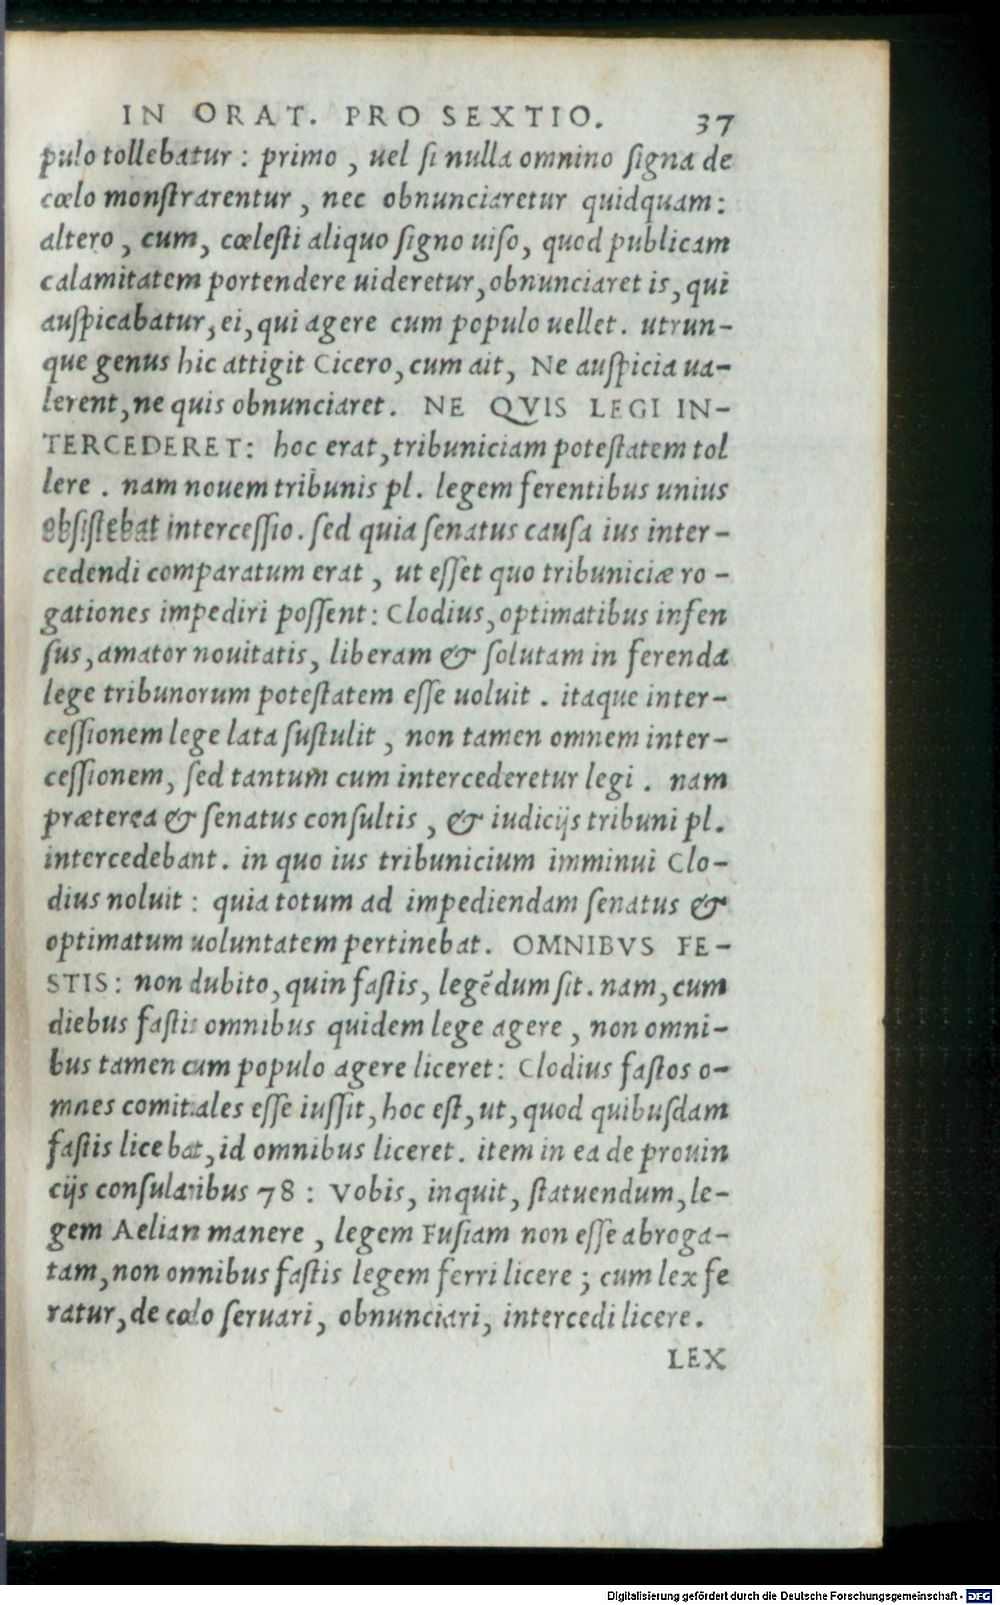 IN ORAT. PRO SEXTIO. 37
pulo tollebatur : primo , uel si nulla omnino signa de
cœlo monstrarentur , nec obnunciaretur quidquam :
altero , cum, cœlesti aliquo signo uiso, quod publicam
calamitatem portendere uideretur, obnunciaret is, qui
auspicabatur, ei, qui agere cum populo uellet. utrun-
que genus hic attigit Cicero, cum ait, Ne auspicia ua-
lerent, ne quis obnunciaret. NE QVIS LEGI IN-
TERCEDERET: hoc erat, tribuniciam potestatem tol
lere . nam nouem tribunis pl. legem ferentibus unius
obsistebat intercessio. sed quia senatus causa ius inter-
cedendi comparatum erat , ut esset quo tribuniciæ ro-
gationes impediri possent: Clodius, optimatibus infen
sus, amator nouitatis, liberam & solutam in ferenda
lege tribunorum potestatem esse uoluit . itaque inter-
cessionem lege lata sustulit , non tamen omnem inter-
cessionem, sed tantum cum intercederetur legi . nam
præterea & senatus consultis , & iudicijs tribuni pl.
intercedebant. in quo ius tribunicium imminui Clo-
dius noluit : quia totum ad impediendam senatus &
optimatum uoluntatem pertinebat. OMNIBVS FE-
STIS: non dubito, quin fastis, legēdum sit. nam, cum
diebus fastis omnibus quidem lege agere , non omni-
bus tamen cum populo agere liceret: Clodius fastos o-
mnes comitiales esse iussit, hoc est, ut, quod quibusdam
fastis licebat, id omnibus liceret. item in ea de prouin
cijs consularibus 78 : Vobis, inquit, statuendum, le-
gem Aelian manere , legem Fusiam non esse abroga-
tam, non onnibus fastis legem ferri licere ; cum lex fe
ratur, de cœlo seruari, obnunciari, intercedi licere.
LEX
Digitalisierung gefördert durch die Deutsche Forschungsgemeinschaft - DFG